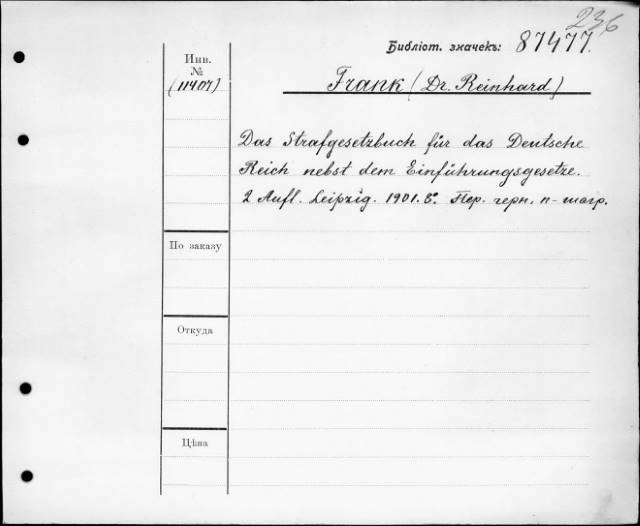 236
Библіот. значекъ: 87477.
Инв.
№
(11407)
Frank (Dr. Reinhard)
Das Strafgesetzbuch für das Deutsche
Reich nebst dem Einführungsgesetze.
2 Aufl. Leipzig. 1901. 8º. Пер. черн. п-шагр.
По заказу
Откуда
Цѣна